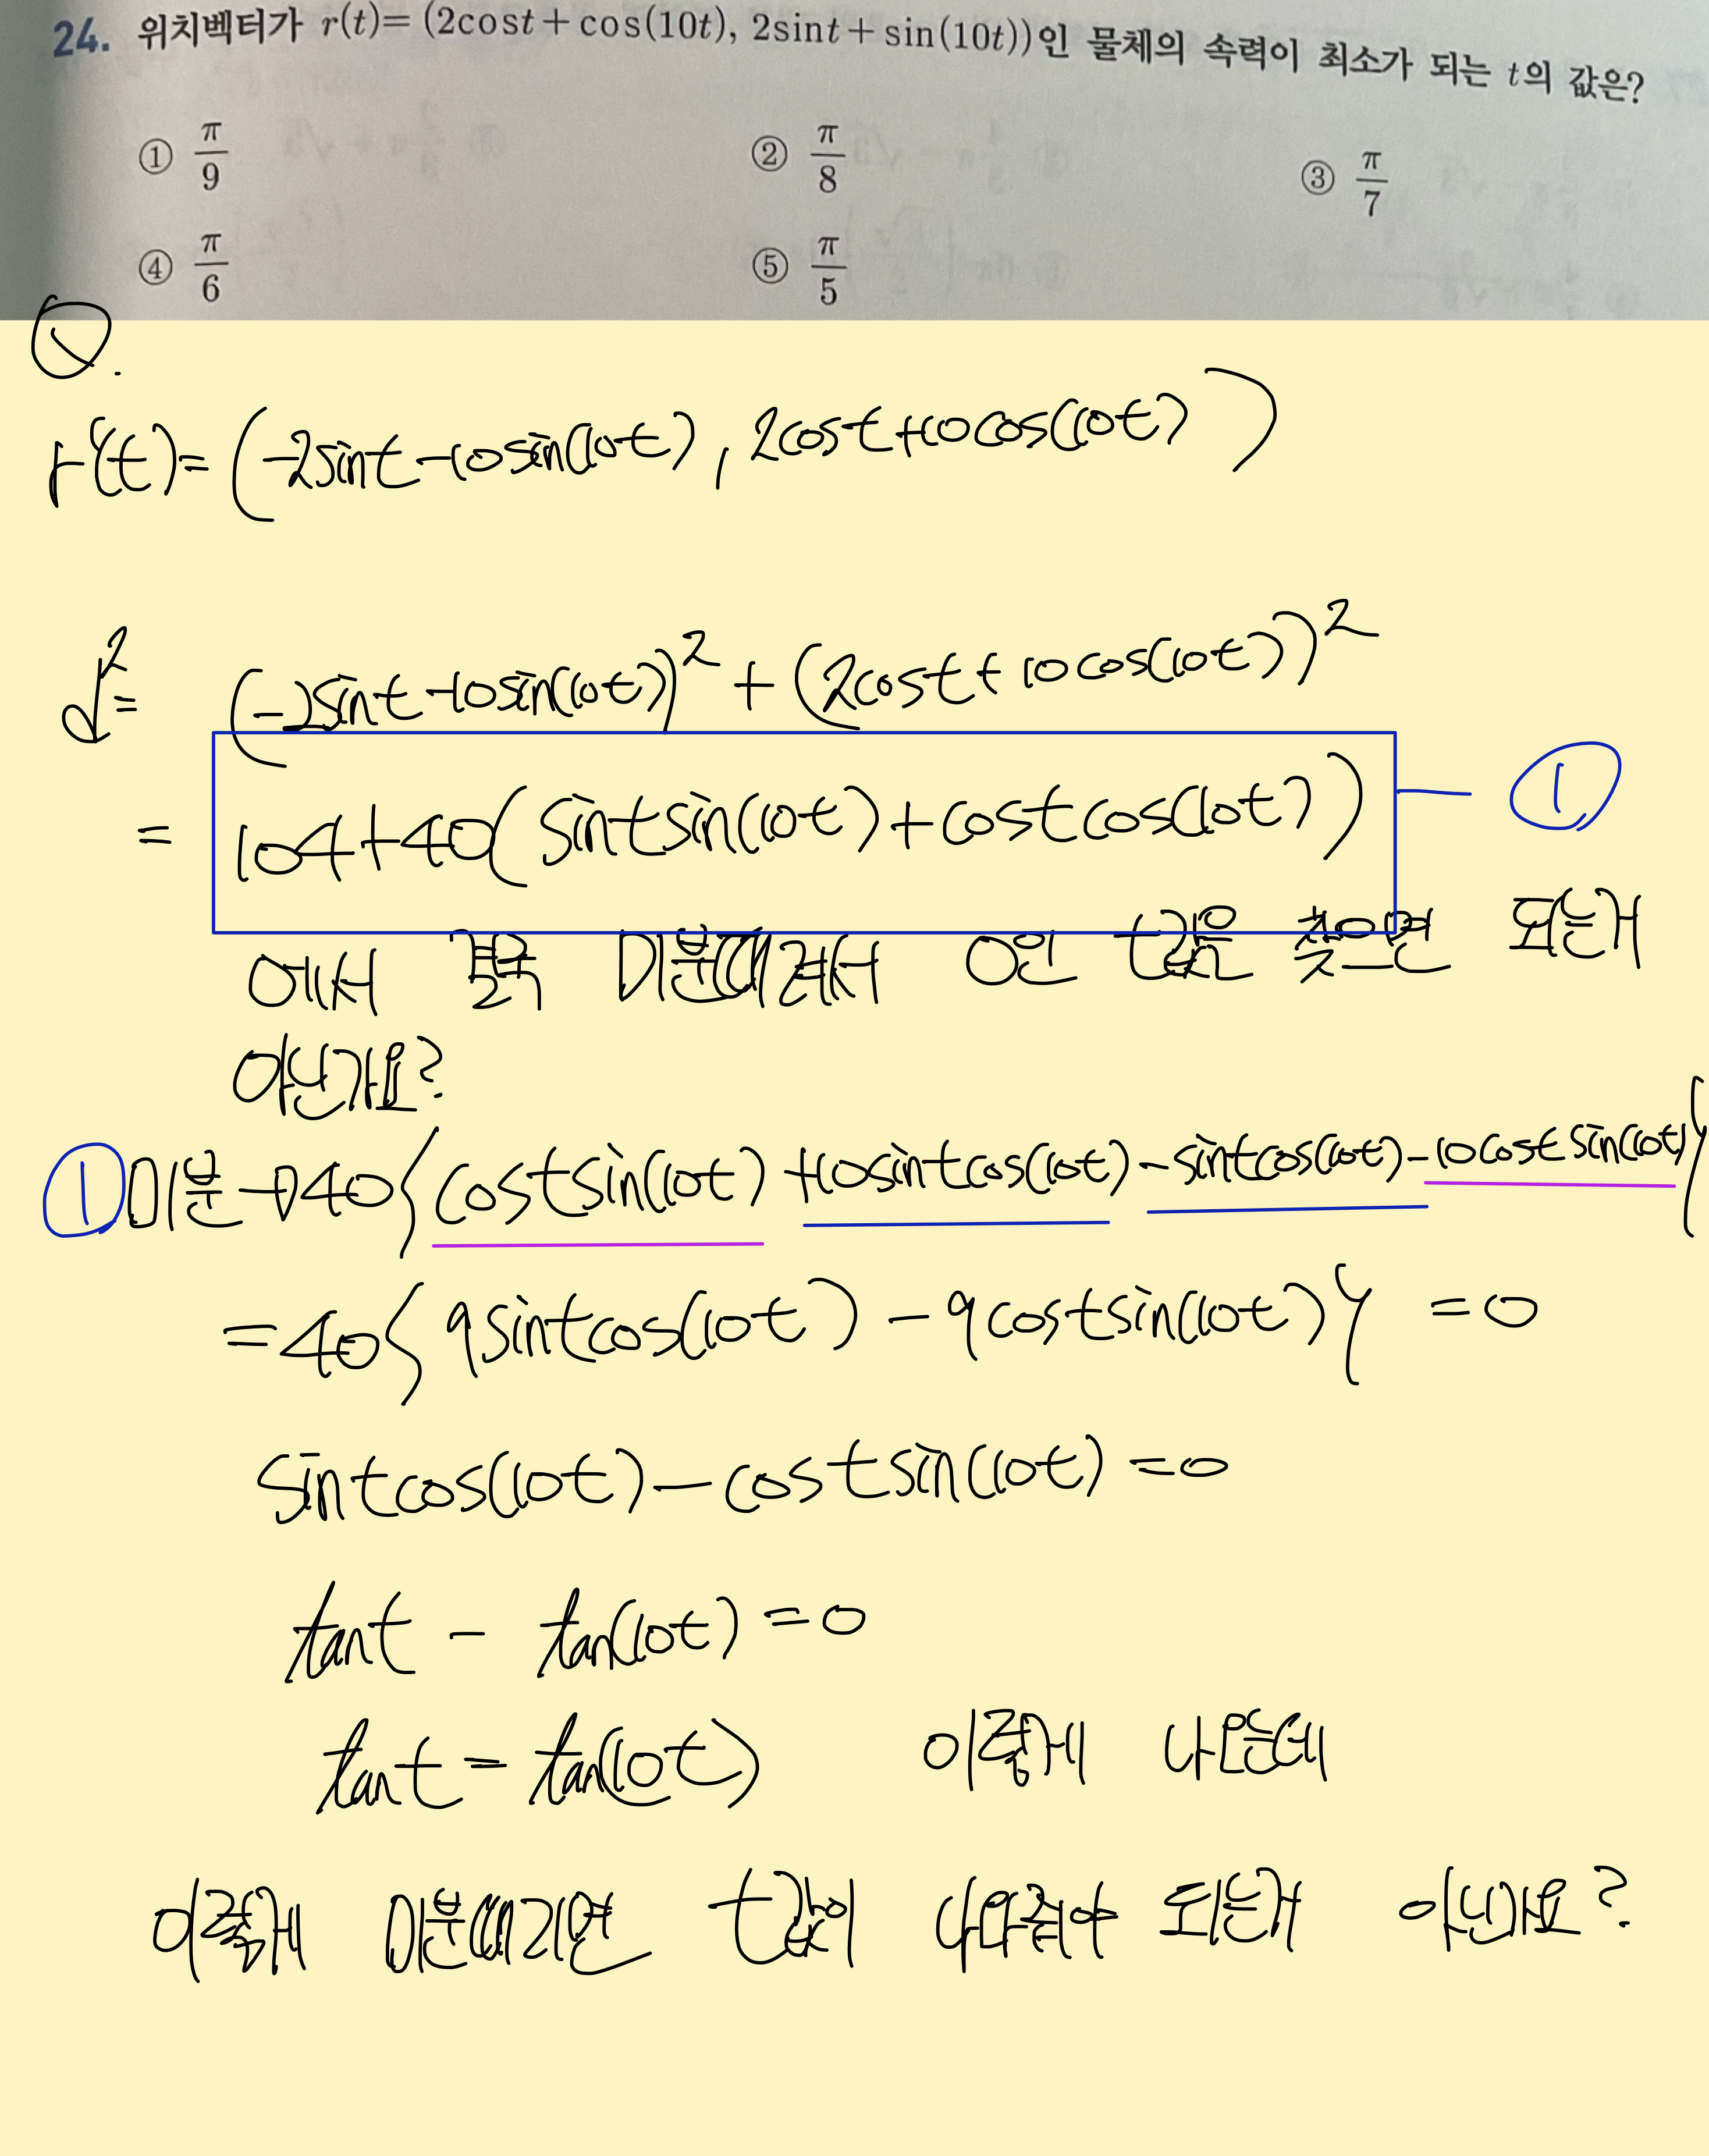 24. 위치벡터가 r(t)= (2cost+cos(10t), 2sint+sin(10t))인 물체의 속력이 최소가 되는 t의 값은?
① π/9 ② π/8 ③ π/7
④ π/6 ⑤ π/5
Q.
r'(t)= (-2sint-10sin(10t), 2cost+10cos(10t))
d²= (-2sint-10sin(10t))² + (2cost+10cos(10t))²
= 104+40(sintsin(10t)+costcos(10t)) ①
에서 미분때려서 0인 t값을 찾으면 되는거
아닌가요?
① 미분→40{costsin(10t)+10sintcos(10t)-sintcos(10t)-10costsin(10t)}
=40{9sintcos(10t)-9costsin(10t)} =0
sintcos(10t)-costsin(10t)=0
tant - tan(10t)=0
tant = tan(10t) 이렇게 나온는데
이렇게 미분때리면 t값이 나와줘야 되는거 아닌가요?